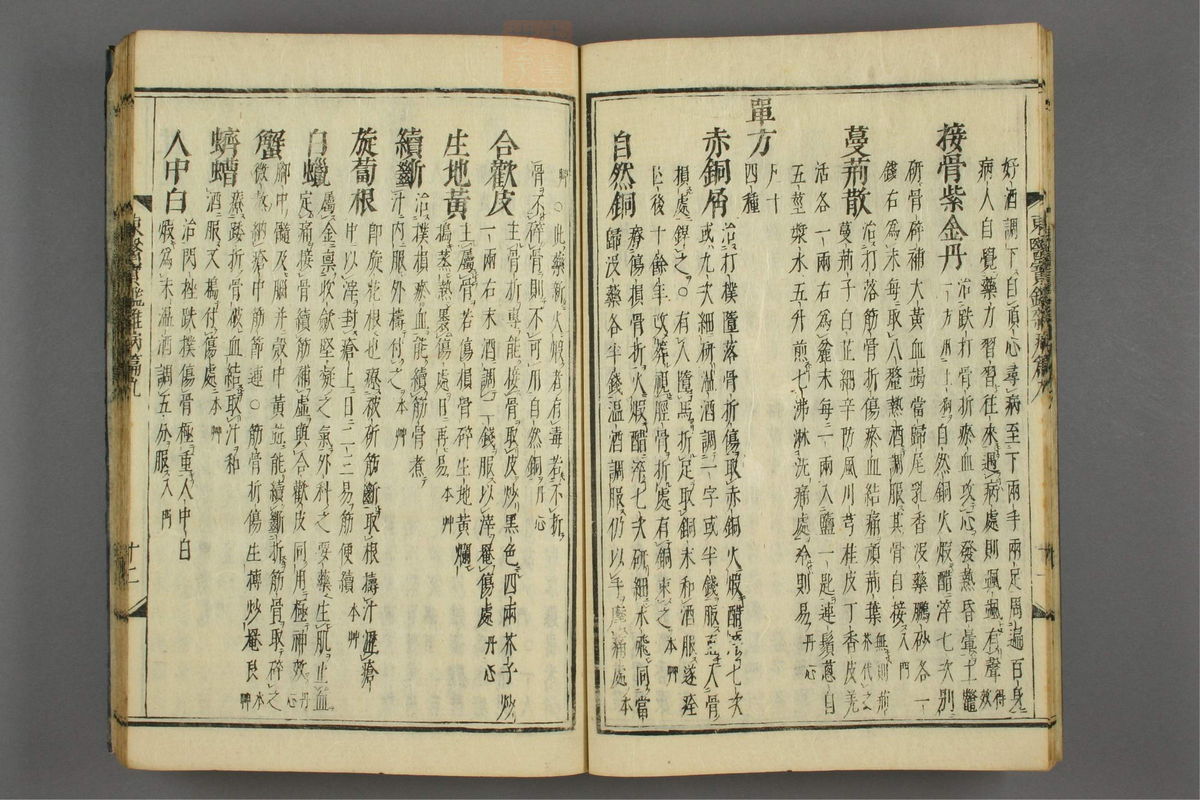 好酒調下自頂心尋病至下兩手兩足周遍百身
病人自覺藥力習習往來遇病處則颯颯有聲得效
接骨紫金丹治跌打骨折瘀血攻心發熱昏暈土鱉
一方土狗自然銅火煆醋淬七次別
研骨碎補大黃血竭當歸尾乳香沒藥鵬砂各一
錢右爲末每取八釐熱酒調服其骨自接入門
蔓荊散治打落筋骨折傷瘀血結痛頑荊葉無則荊芥代之
蔓荊子白芷細辛防風川芎桂皮丁香皮羌
活各一兩右爲麁末每一兩入鹽一匙連鬚葱白
五莖漿水五升煎七沸淋洗痛處冷則易丹心
單方凡十四種
赤銅屑治打撲墮落骨折傷取赤銅火煆醋淬七次
或九次細研淋酒調一字或半錢服直入骨
損處銲之○有人墮馬折足取銅末和酒服遂痊
後十餘年改葬視脛骨折處有銅束之本草
自然銅療傷損骨折火煆醋淬七次研細水飛同當
歸沒藥各半錢溫酒調服仍以手摩痛處本
草○此藥新火煆者有毒若不折
骨不碎骨則不可用自然銅丹心
合歡皮主骨折專能接骨取皮炒黑色四兩芥子炒
一兩右末酒調二錢服以滓罨傷處丹心
生地黃主屬骨若傷損骨碎生地黃爛
搗蒸熱裹傷處日再易本草
續斷治撲損瘀血能續筋骨煮
汁內服外擣付之本草
旋葍根卽旋花根也療被斫筋斷取根擣汁瀝瘡
中以滓封瘡上日二三易筋便續本草
白蠟屬金稟收斂堅凝之氣外科之要藥生肌止血
定痛接骨續筋補虛與合歡皮同用極神效丹心
蟹脚中髓及腦幷殼中黃並能續斷折筋骨取碎之
微熬納瘡中筋節連○筋骨折傷生搏炒罨良本草
蠐螬療踒折骨破血結取汁和
酒服又搗付傷處本草
人中白治閃挫跌撲傷骨極重人中白
煆爲末溫酒調五分服入門
東醫寶鑑雜病篇九
東醫寶鑑雜病篇九
十二